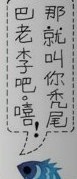 那就叫你秃尾
巴老李吧。嘻!